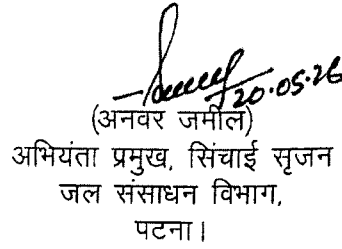 20.05.26
(अनवर जमील)
अभियंता प्रमुख, सिंचाई सृजन
जल संसाधन विभाग,
पटना।